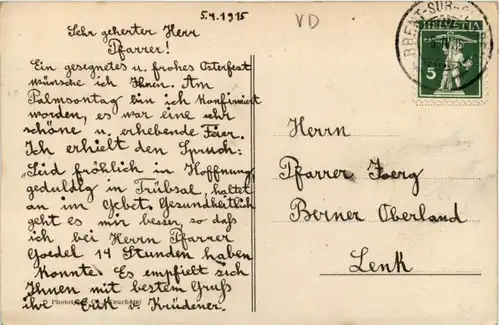 5.4.1915
VD
Sehr geherter Herr
Pfarrer!
Ein gesegnetes u. frohes Osterfest
wünsche ich Ihnen. Am
Palmsontag bin ich Konfirmiert
worden, es war eine sehr
schöne u. erhebende Feier.
Ich erhielt den Spruch:
"Seid fröhlich in Hoffnung
geduldig in Trübsal, haltet
an im Gebet. Gesundheitlich
geht es mir besser, so daß
ich bei Herrn Pfarrer
Goedel 14 Stunden haben
Konnte. Es empfielt sich
Ihnen mit bestem Gruß
ihr Erik v. Krüdener.
BRENT-SUR-
HELVETIA
5
Herrn
Pfarrer Joerg
Berner Oberland
Lenk